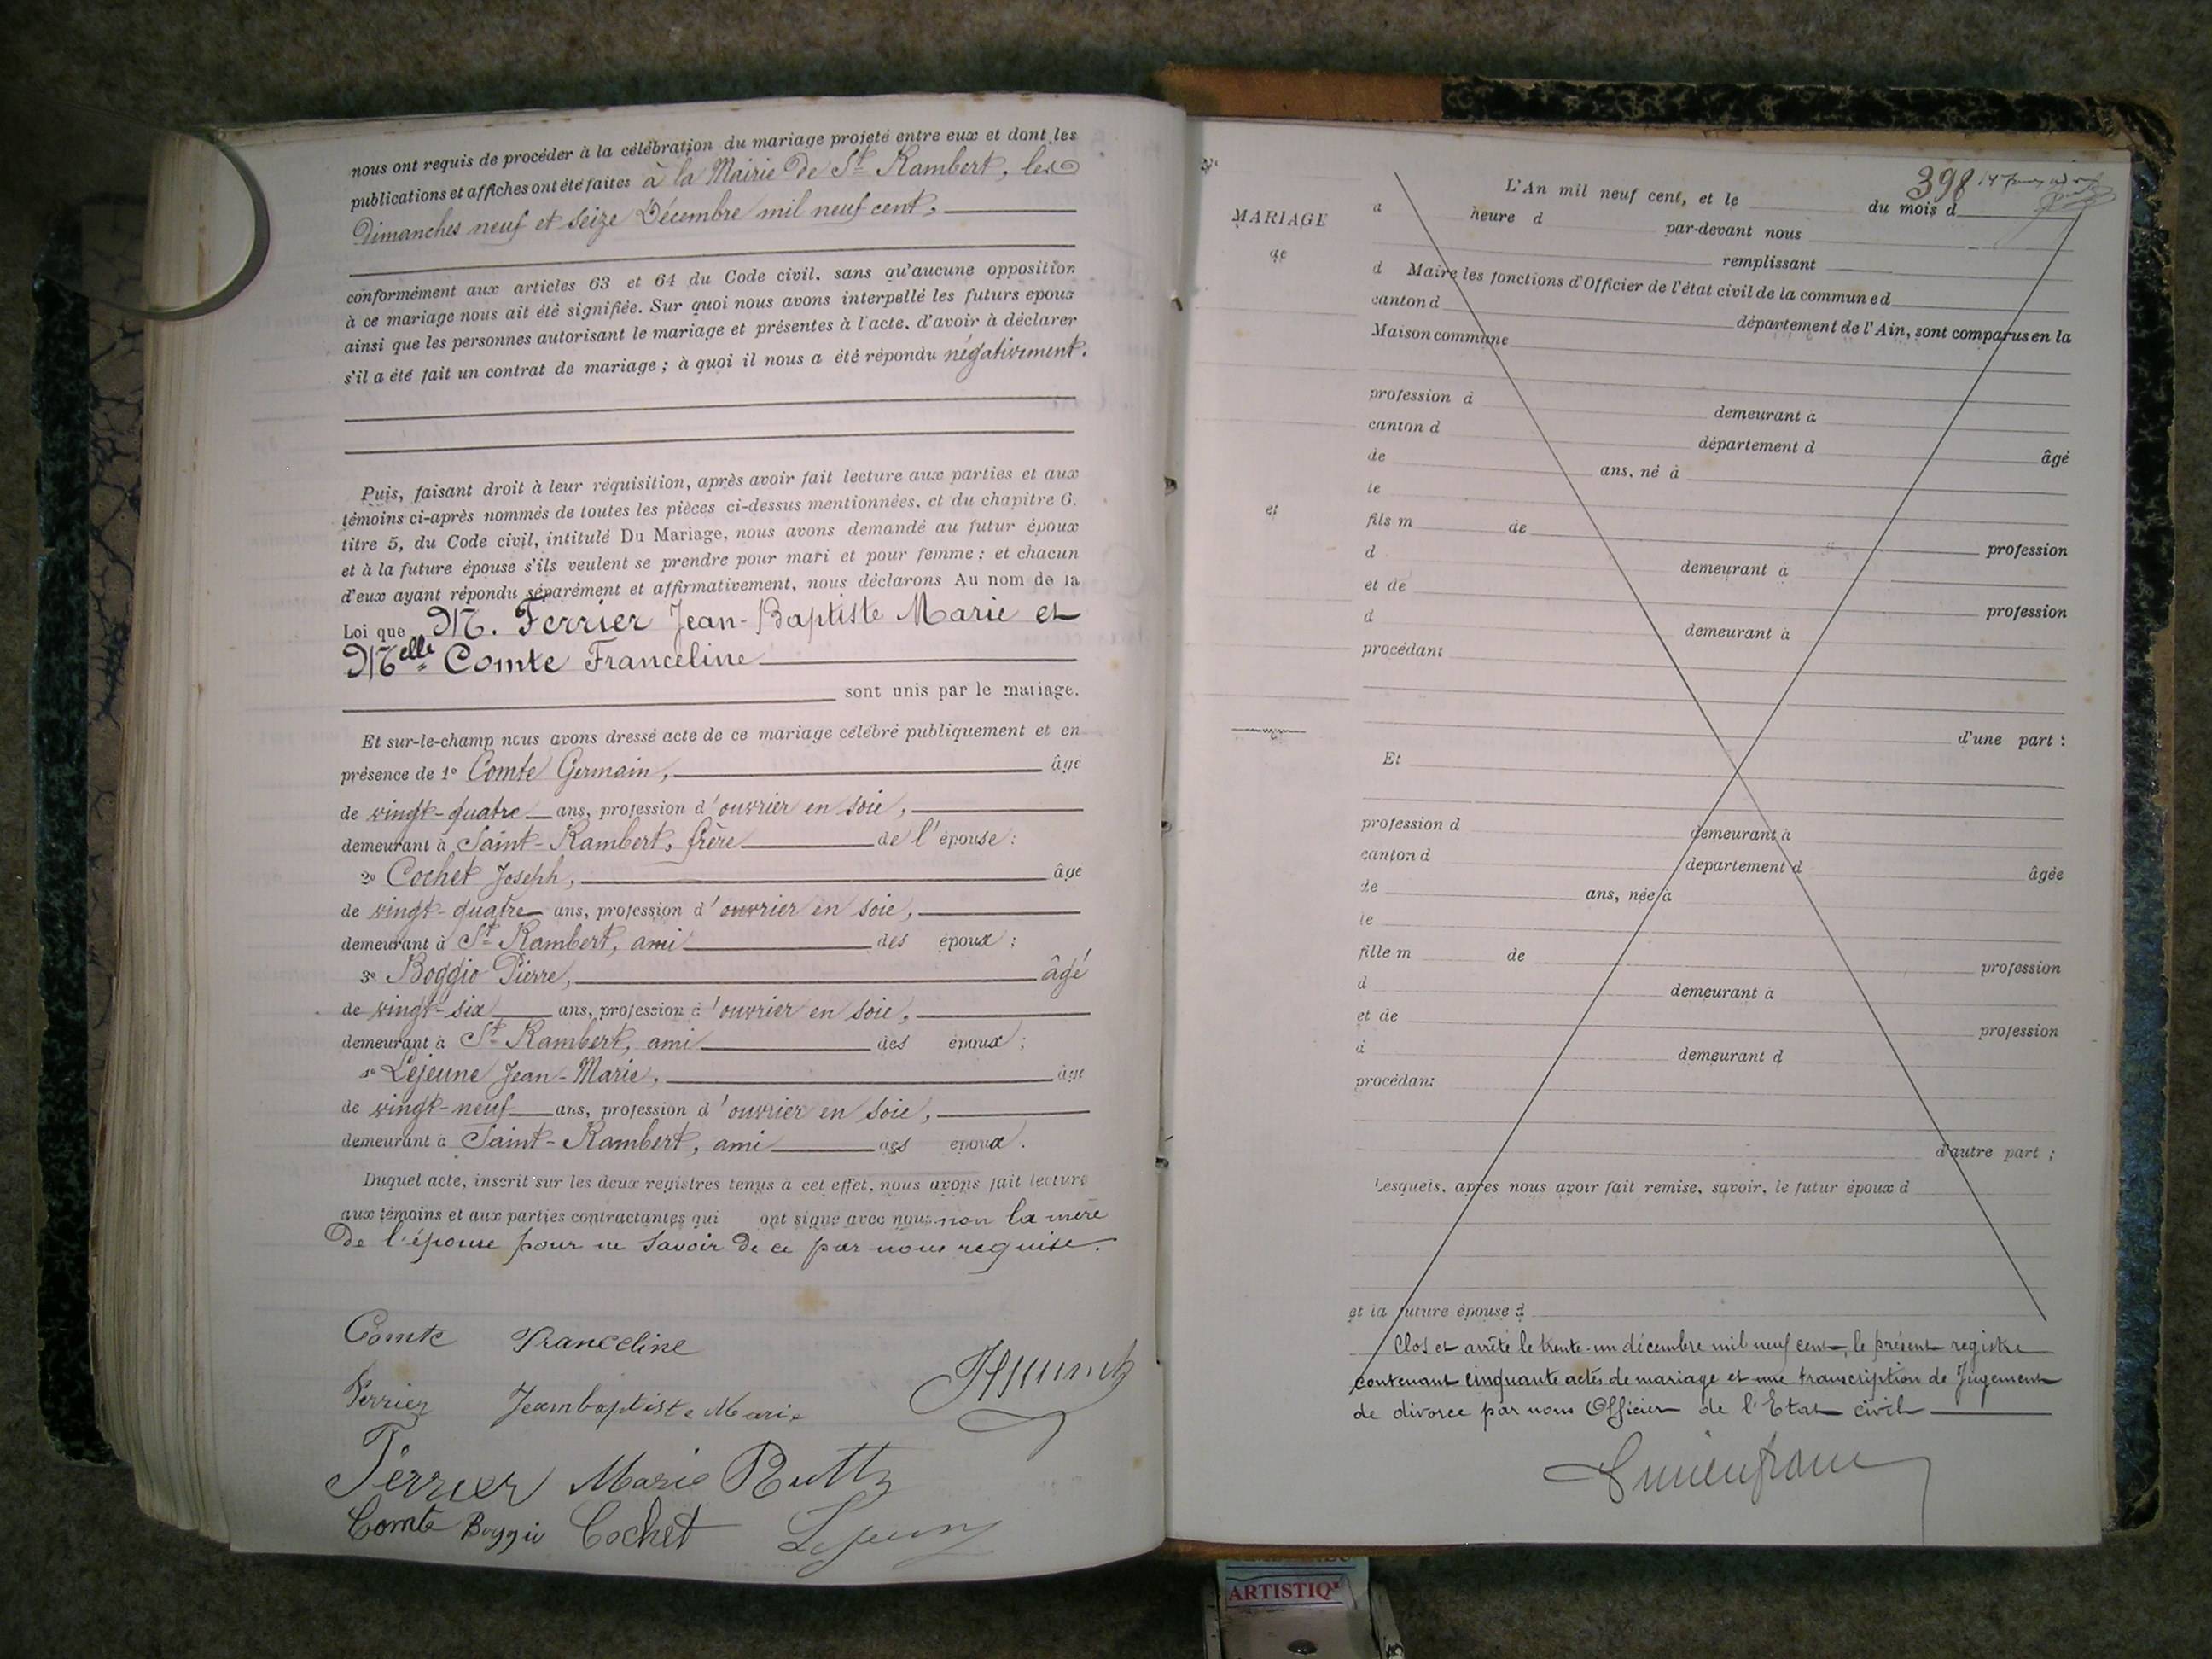 nous ont requis de procéder à la célébration du mariage projeté entre eux et dont les
publications et affiches ont été faites à la Mairie de St Rambert, les
Dimanches neuf et seize Décembre mil neuf cent;
conformément aux articles 63 et 64 du Code civil. sans qu'aucune opposition
à ce mariage nous ait été signifiée. Sur quoi nous avons interpellé les futurs epoux
ainsi que les personnes autorisant le mariage et présentes à l'acte. d'avoir à déclarer
s'il a été fait un contrat de mariage; à quoi il nous a été répondu négativement.
Puis, faisant droit à leur réquisition, après avoir fait lecture aux parties et aux
témoins ci-après nommés de toutes les pièces ci-dessus mentionnées. et du chapitre 6.
titre 5, du Code civil, intitulé Du Mariage, nous avons demandé au futur époux
et à la future épouse s'ils veulent se prendre pour mari et pour femme; et chacun
d'eux ayant répondu séparément et affirmativement, nous déclarons Au nom de la
Loi que M. Ferrier Jean-Baptiste Marie et
Melle Comte Franceline
sont unis par le mariage.
Et sur-le-champ nous avons dressé acte de ce mariage célébré publiquement et en
présence de 1° Comte Germain, âgé
de vingt-quatre ans, profession d'ouvrier en soie,
demeurant à Saint-Rambert, frère de l'épouse:
2° Cochet Joseph, âgé
de vingt-quatre ans, profession d'ouvrier en soie,
demeurant à St Rambert, ami des époux;
3° Boggio Pierre, âgé
de vingt-six ans, profession d'ouvrier en soie,
demeurant à St Rambert, ami des époux;
4° Lejeune Jean-Marie, âgé
de vingt-neuf ans, profession d'ouvrier en soie,
demeurant à Saint-Rambert, ami des époux.
Duquel acte, inscrit sur les deux registres tenus à cet effet, nous avons fait lecture
aux témoins et aux parties contractantes qui ont signé avec nous non la mère
de l'épouse pour ne savoir de ce par nous requise.
Comte Franceline
Ferrier Jeanbaptiste Marie
Ferrier Marie Rutty
Comte Boggio Cochet Lejeune
N°
398
MARIAGE
de
et
L'An mil neuf cent, et le du mois d
à heure d par-devant nous
remplissant
d Maire les fonctions d'Officier de l'état civil de la commune d
canton d département de l'Ain, sont comparus en la
Maison commune
profession d demeurant à
canton d département d âgé
de ans, né à
le
fils m de profession
d demeurant à
et de profession
d demeurant à
procédant
d'une part:
Et
profession d demeurant à
canton d departement d âgée
de ans, née à
le
fille m de profession
d demeurant à
et de profession
d demeurant d
procédant
d'autre part;
Lesquels, apres nous avoir fait remise, savoir, le futur époux d
et la future épouse d
Clos et arrêté le trente-un décembre mil neuf cent, le présent registre
contenant cinquante actes de mariage et une transcription de Jugement
de divorce par nous Officier de l'Etat civil
ARTISTIQ